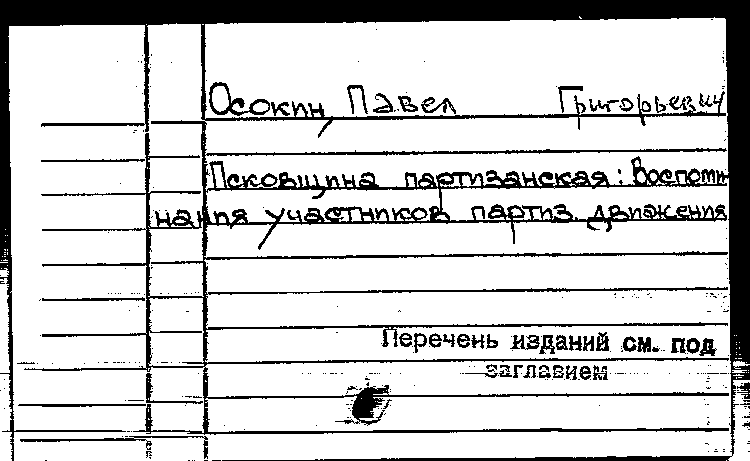 Осокин, Павел Григорьевич
Псковщина партизанская: Воспоми
нания участников партиз. движения
Перечень изданий см. под
заглавием